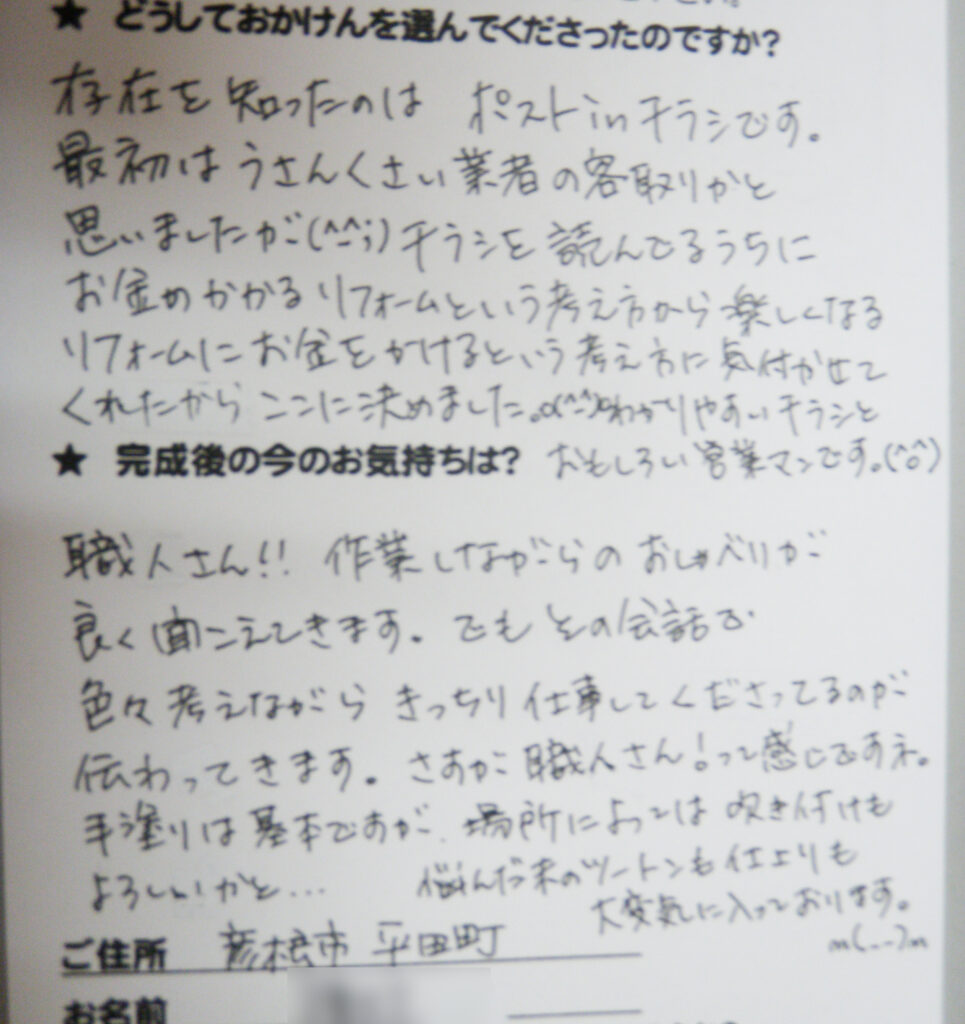 ★ どうしておかけんを選んでくださったのですか?
存在を知ったのは ポストinチラシです。
最初はうさんくさい業者の客取りかと
思いましたが(^^;)チラシを読んでるうちに
お金のかかるリフォームという考え方から楽しくなる
リフォームにお金をかけるという考え方に気付かせて
くれたからここに決めました。o(^^)oわかりやすいチラシと
★ 完成後の今のお気持ちは? おもしろい営業マンです。(^o^)
職人さん!! 作業しながらのおしゃべりが
良く聞こえてきます。でもその会話で
色々考えながらきっちり仕事してくださってるのが
伝わってきます。さすが職人さん!って感じですネ。
手塗りは基本ですが、場所によっては吹き付けも
よろしいかと… 悩んだ末のツートンも仕上りも
大変気に入っております。
ご住所 彦根市 平田町 m(_ _)m
お名前